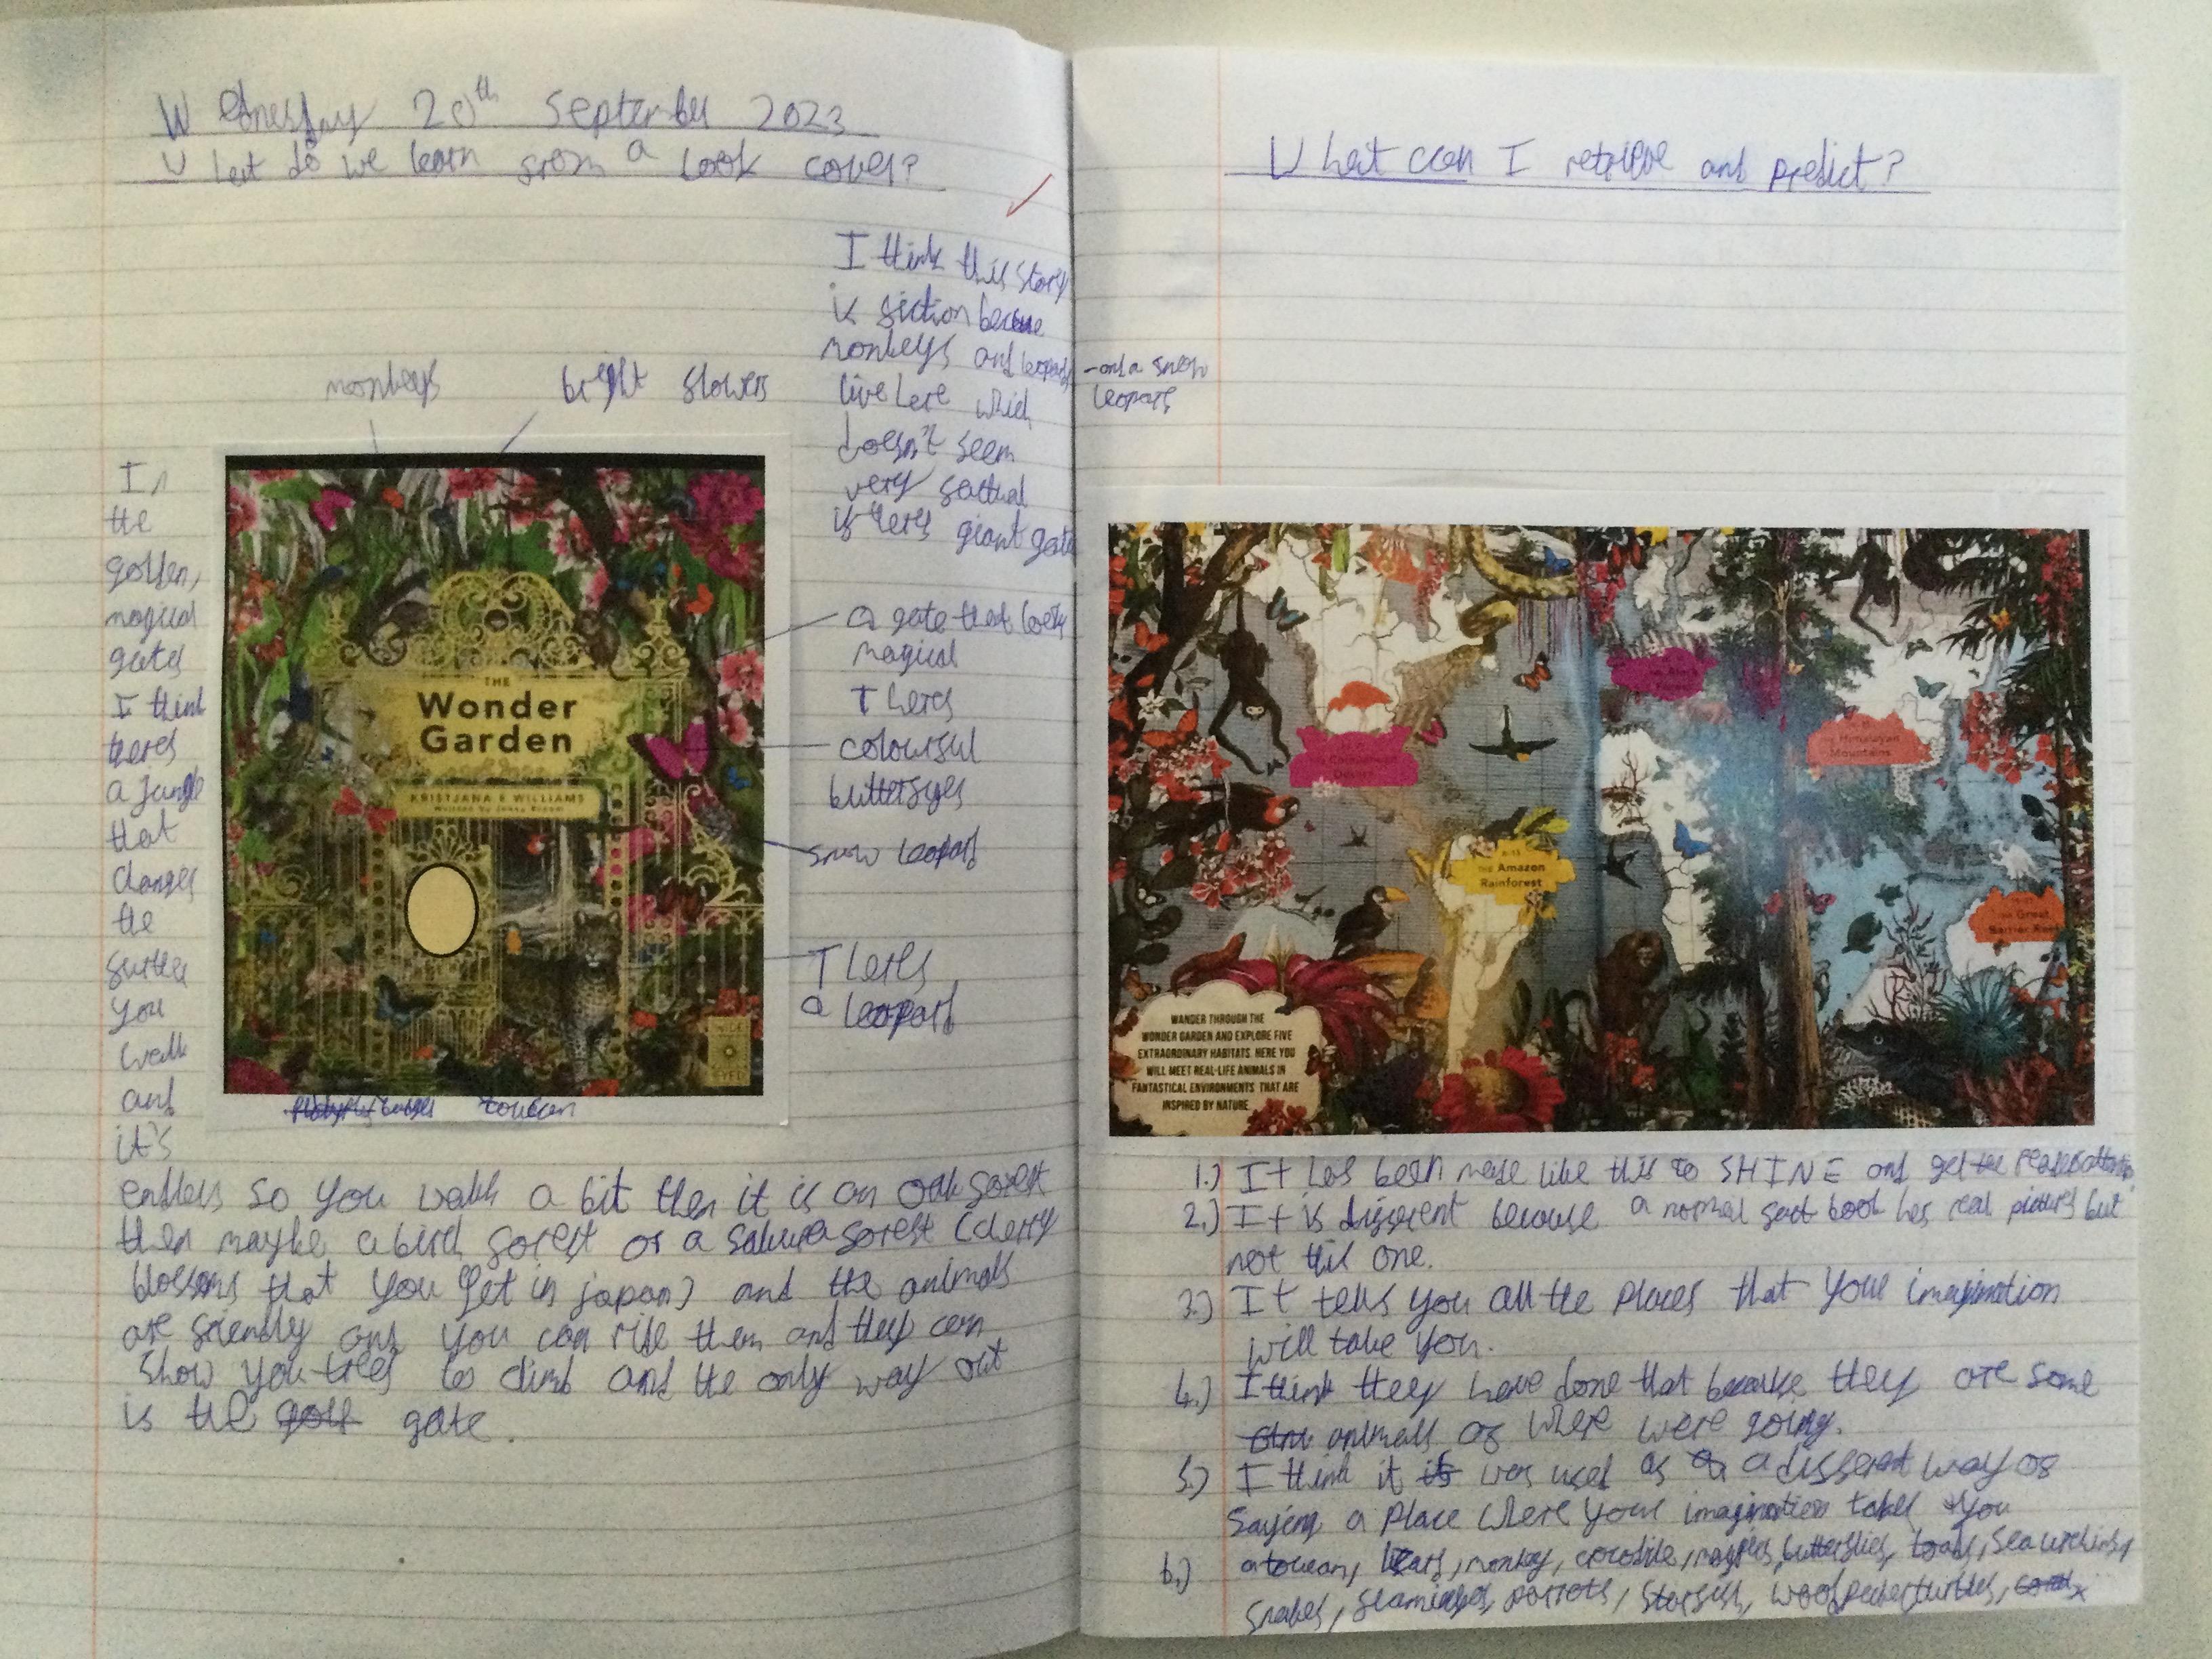 Wednesday 20th September 2023
What do we learn from a book cover?
I think this story
is fiction because
monkeys and leopards
live here which
doesn't seem
very factual
if theres giant gate
monkeys
bright flowers
a gate that looks
magical
Theres
colourful
butterflyes
snow leopard
Theres
a leopard
THE
Wonder
Garden
KRISTJANA S WILLIAMS
Written by Jenny Broom
WIDE
EYED
toucan
In
the
golden,
magical
gates
I think
theres
a jungle
that
changes
the
further
you
walk
and
it's
endless so you walk a bit then it is an oak forest
then maybe a birch forest or a sakura forest (cherry
blossoms that you get in japan) and the animals
are friendly and you can ride them and they can
show you trees to climb and the only way out
is the golf gate.
What can I retrieve and predict?
-and a snow
leopard
THE Chihuahuan
Desert
THE Black
Forest
THE Himalayan
Mountains
THE Amazon
Rainforest
THE Great
Barrier Reef
WANDER THROUGH THE
WONDER GARDEN AND EXPLORE FIVE
EXTRAORDINARY HABITATS. HERE YOU
WILL MEET REAL-LIFE ANIMALS IN
FANTASTICAL ENVIRONMENTS THAT ARE
INSPIRED BY NATURE
1.) It has been made like this to SHINE and get the readers attention
2.) It is different because a normal fact book has real pictures but
not this one.
3.) It tells you all the places that your imagination
will take you.
4.) I think they have done that because they are some
animals of where were going.
5.) I think it is was used as a a different way of
saying a place where your imagination takes you
6.) a toucan, bears, monkey, crocodile, magpies, butterflies, toads, sea urchins,
snakes, flamingos, parrots, starfish, woodpecker, turtles,